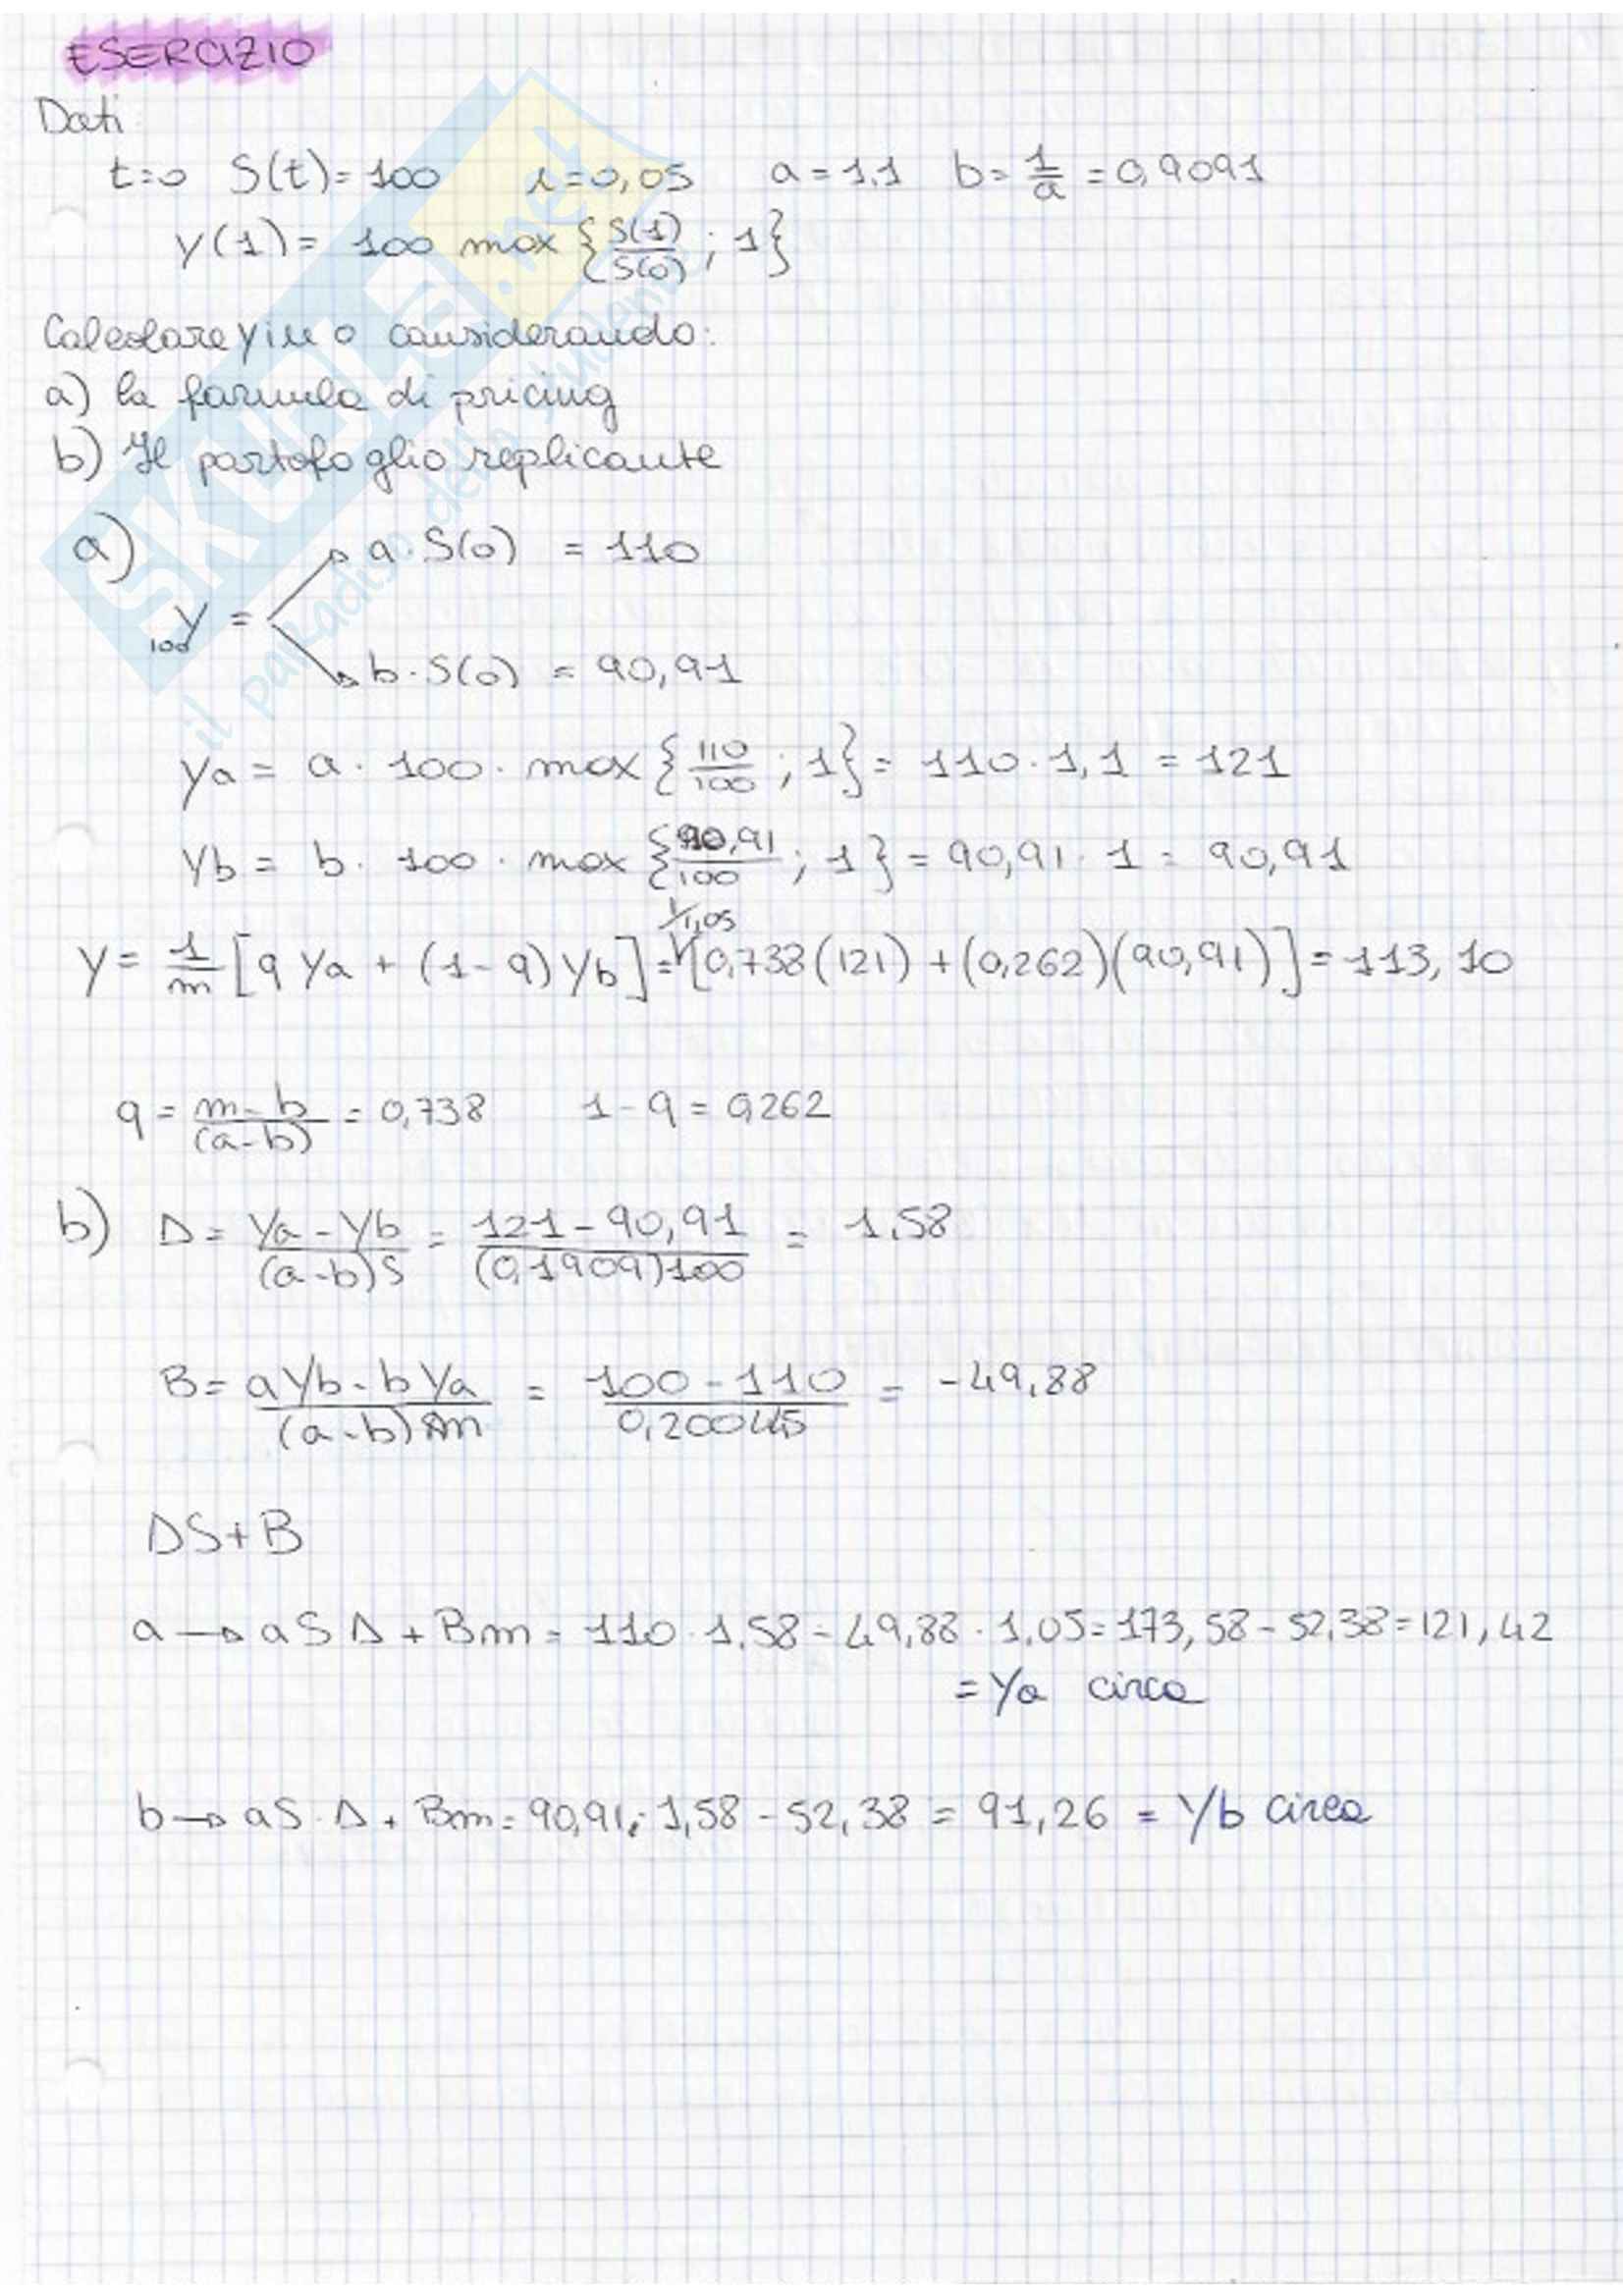 ESERCIZIO
Dati
t=0 S(t)=100 i=0,05 a=1,1 b=1/a=0,9091
y(1)= 100 max {S(1)/S(0); 1}
Calcolare y in 0 considerando:
a) la formula di pricing
b) Il portafoglio replicante
a)
a·S(0) = 110
y =
100
b·S(0) = 90,91
ya = a·100·max {110/100; 1} = 110·1,1 = 121
yb = b·100·max {90,91/100; 1} = 90,91·1 = 90,91
y = 1/m [q ya + (1-q) yb] = 1/1,05 [0,738(121) + (0,262)(90,91)] = 113,10
q = m-b/(a-b) = 0,738 1-q = 0,262
b) Δ = ya-yb/(a-b)S = 121-90,91/(0,1909)100 = 1,58
B = a yb - b ya/(a-b)m = 100-110/0,20045 = -49,88
ΔS+B
a → aSΔ + Bm = 110·1,58 - 49,88·1,05 = 173,58 - 52,38 = 121,42
= ya circa
b → aS·Δ + Bm = 90,91·1,58 - 52,38 = 91,26 = yb circa
SKUOLA.net
il paradiso dello studente